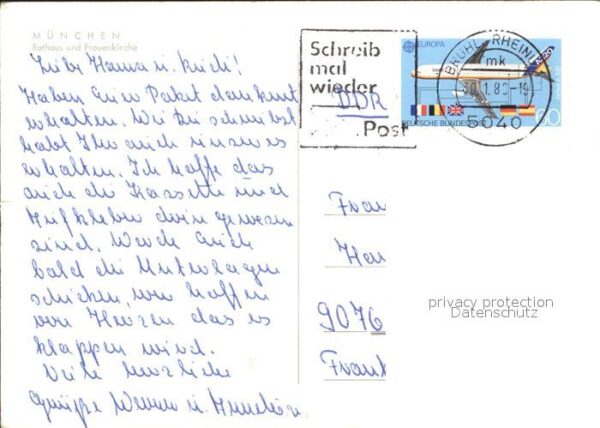 MÜNCHEN
Rathaus und Frauenkirche
Liebe Hanna u.
Haben Euer Paket dankend
erhalten. Wie Du schreibst
habt Ihr auch unseres
erhalten. Ich hoffe das
auch die Kassette und
Aufkleber drin gewesen
sind. Werde Euch
bald die Unterlagen
schicken, wir hoffen
von Herzen das es
klappen wird.
Viele herzliche
Grüße Werner u.
Schreib
mal
wieder
Post
DDR
EUROPA
DEUTSCHE BUNDESPOST
60
BRÜHL, RHEINL
mk
5040
Frau
Han
9076
Frank
privacy protection
Datenschutz